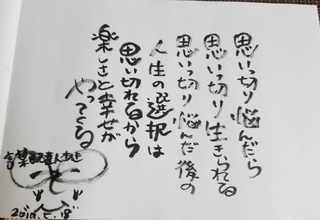 思いっ切り悩んだら
思いっ切り生きられる
思いっ切り悩んだ後の
人生の選択は
思い切れるから
楽しさと幸せが
やってくる